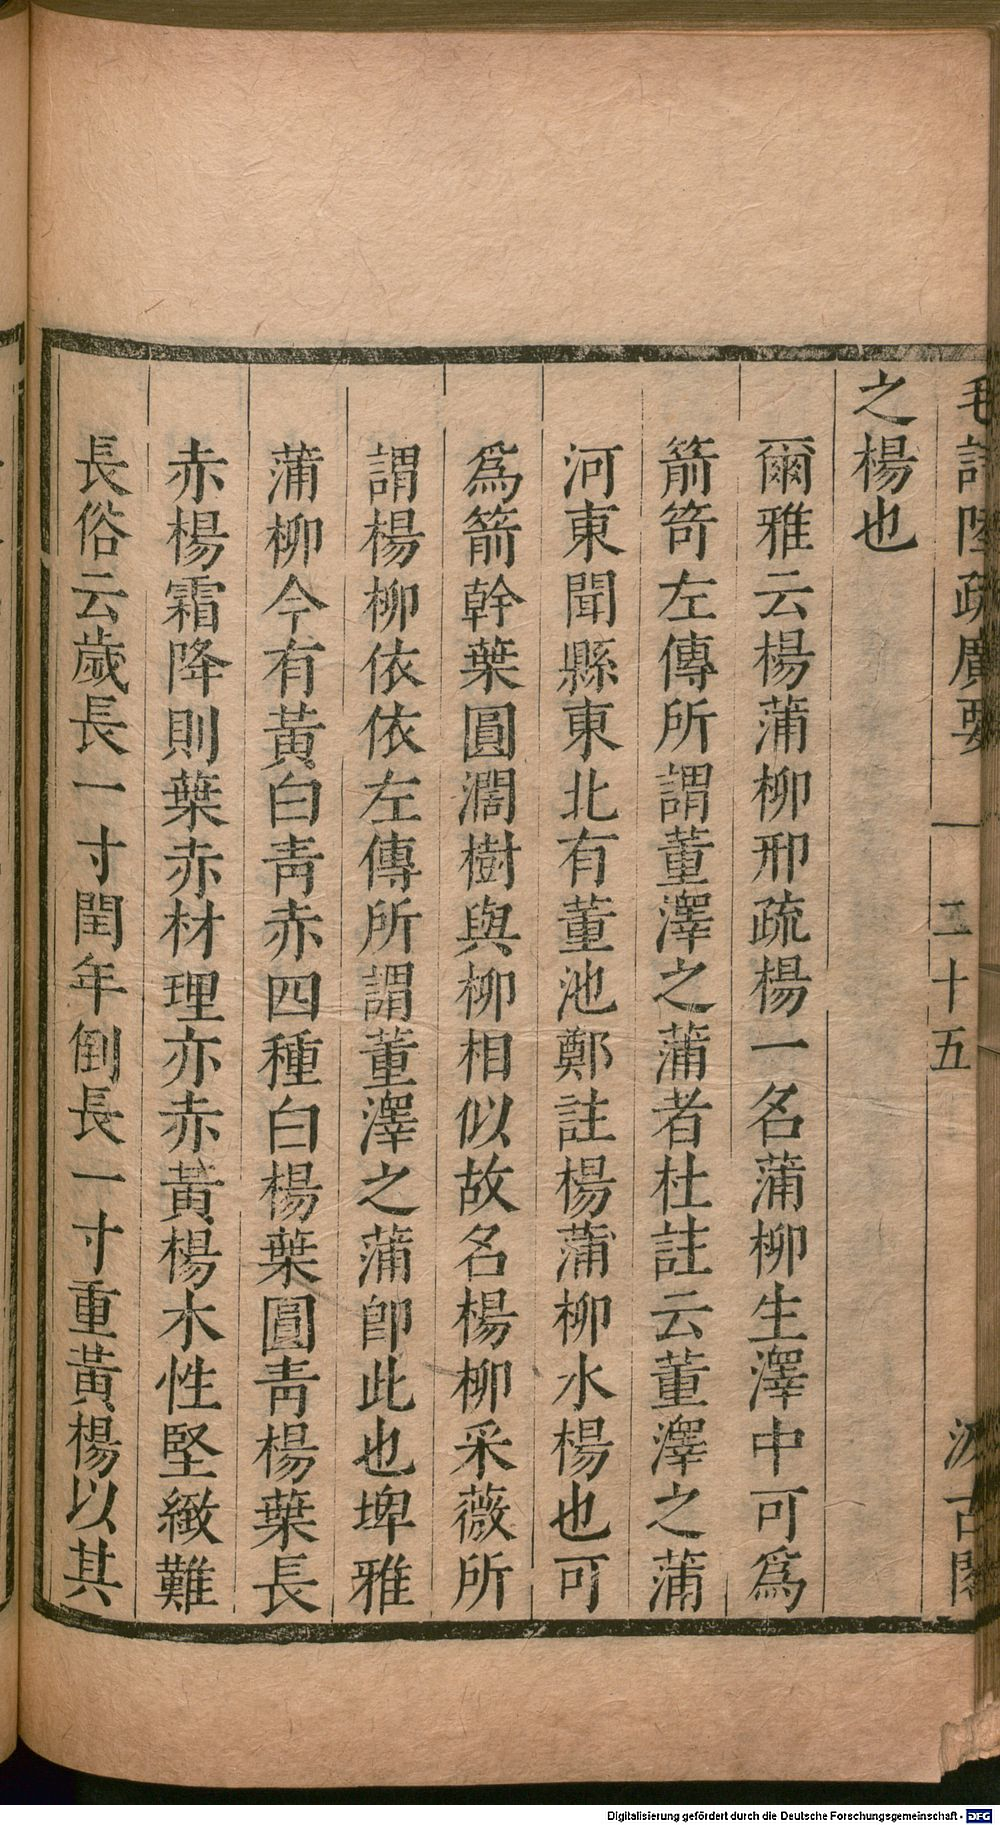 毛詩陸疏廣要 一 二十五 汲古閣
之楊也
爾雅云楊蒲柳邢疏楊一名蒲柳生澤中可爲
箭笴左傳所謂董澤之蒲者杜註云董澤之蒲
河東聞縣東北有董池鄭註楊蒲柳水楊也可
爲箭幹葉圓濶樹與柳相似故名楊柳采薇所
謂楊柳依依左傳所謂董澤之蒲卽此也埤雅
蒲柳今有黃白靑赤四種白楊葉圓靑楊葉長
赤楊霜降則葉赤材理亦赤黃楊木性堅緻難
長俗云歲長一寸閏年倒長一寸重黃楊以其
Digitalisierung gefördert durch die Deutsche Forschungsgemeinschaft - DFG